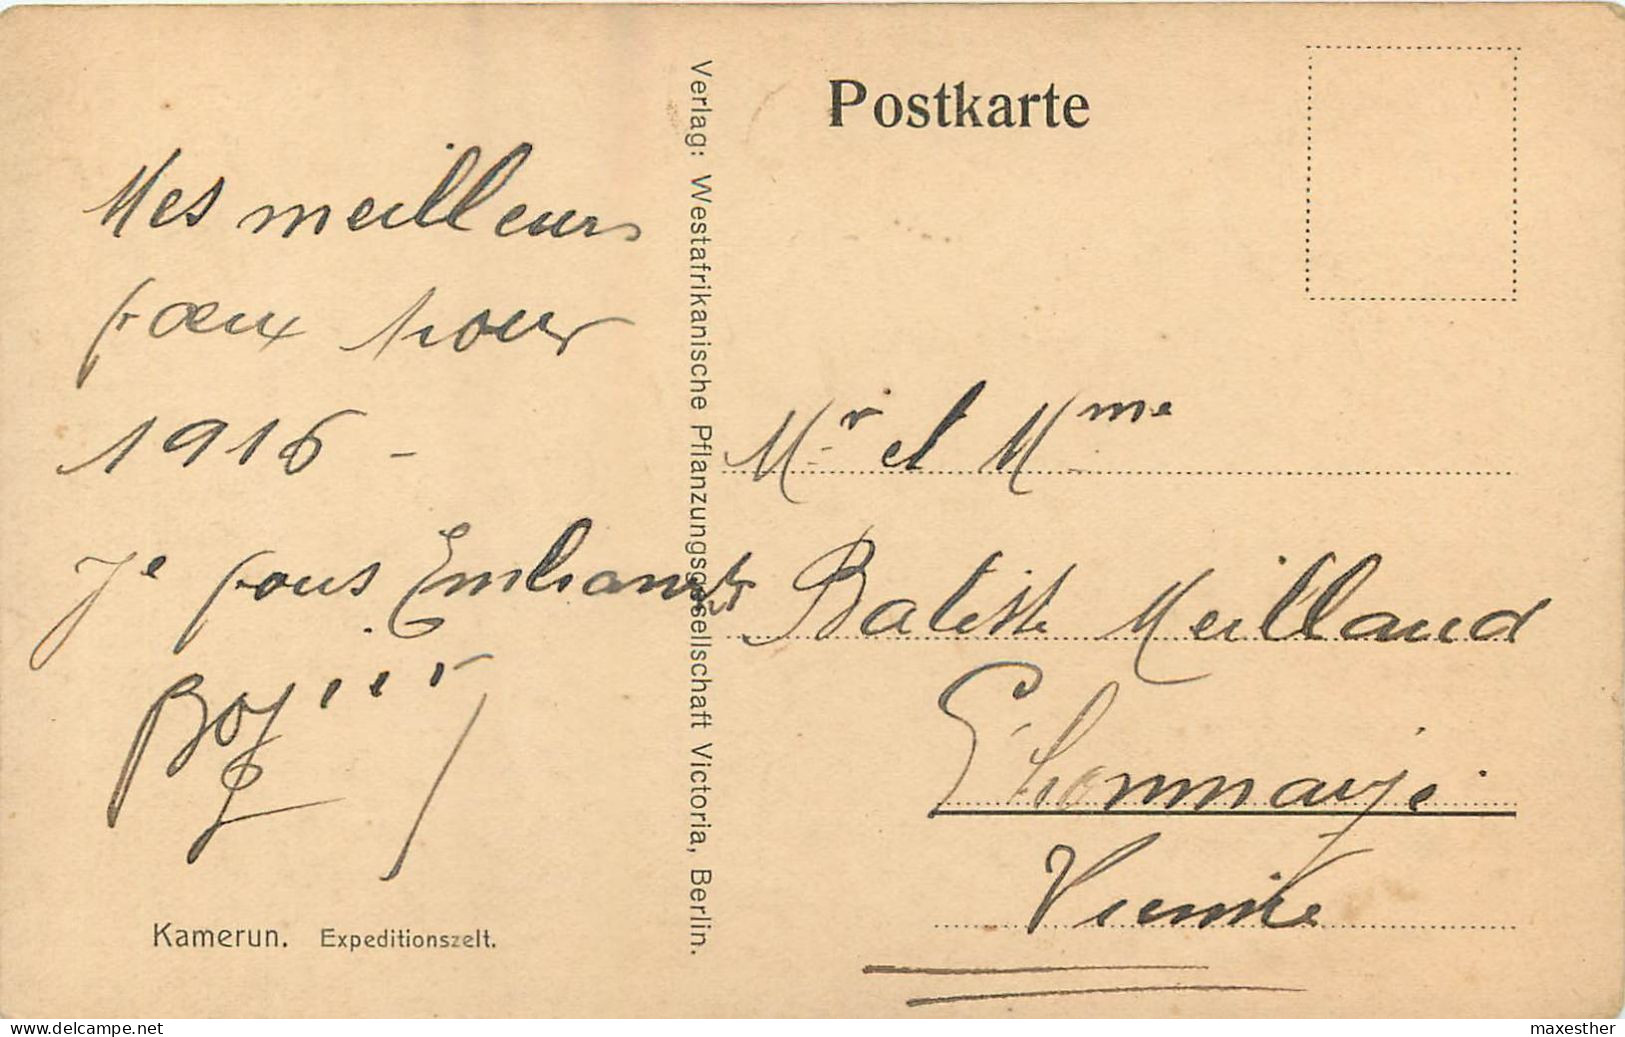 Postkarte
Mes meilleurs
vœux pour
1916 -
Je vous Embrasse
Verlag: Westafrikanische Pflanzungsgesellschaft Victoria, Berlin.
Mr et Mme
Batiste Meilland
Vienne
Kamerun. Expeditionszelt.
www.delcampe.net
maxesther